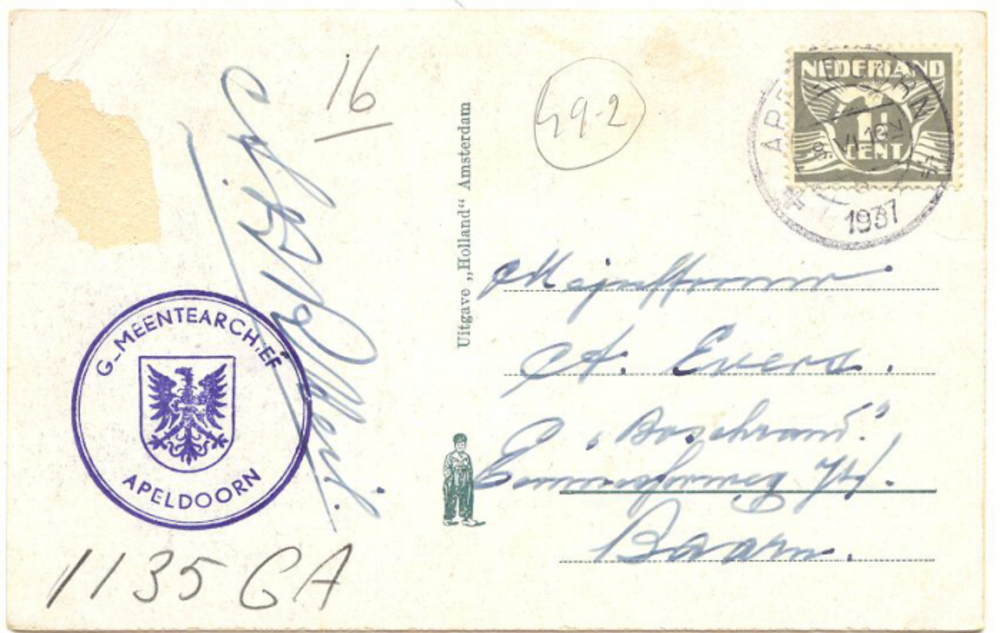 16
49-2
NEDERLAND
1½
CENT
APELDOORN
1937
Uitgave „Holland" Amsterdam
G_MEENTEARCH.EF
APELDOORN
Mejuffrouw
A. Evers.
„Boschrand."
Baarn.
1135 GA